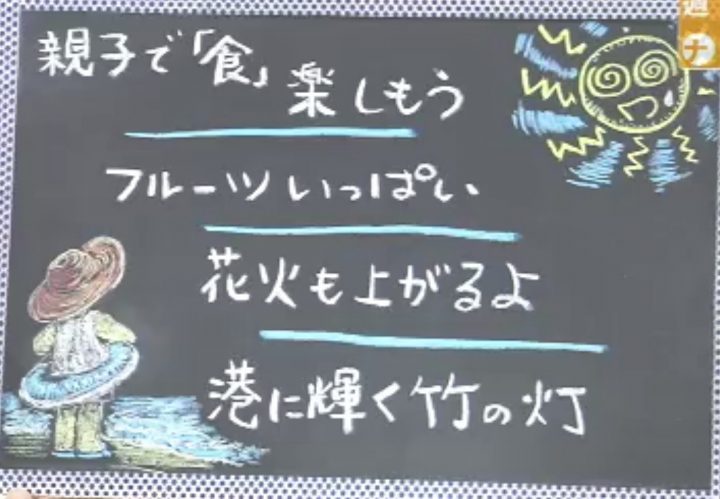 親子で「食」楽しもう
フルーツいっぱい
花火も上がるよ
港に輝く竹の灯
週
ナ